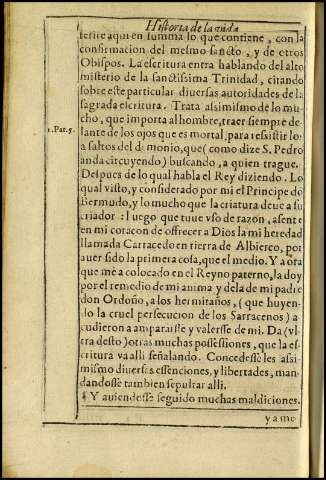 Historia de la vida
ferire aqui en summa lo que contiene, con la
confirmacion del mesmo sancto, y de otros
Obispos. La escritura entra hablando del alto
misterio de la sanctissima Trinidad, citando
sobre este particular diversas autoridades de la
sagrada escritura. Trata assimismo de lo mu-
cho, que importa al hombre, traer siempre de-
1. Pat. 5.
lante de los ojos que es mortal, para resistir los
assaltos del demonio, que (como dize S. Pedro
anda circuyendo) buscando, a quien trague.
Despues de lo qual habla el Rey diziendo. Lo
qual visto, y considerado por mi el Principe do
Bermudo, y lo mucho que la criatura deue a su
criador: luego que tuue vso de razon, asente
en mi coracon de offrecer a Dios la mi heredad
llamada Carracedo en tierra de Albierco, por
auer sido la primera cosa, que el medio. Y aora
que me a colocado en el Reyno paterno, la doy
por el remedio de mi anima y de la de mi padre
don Ordoño, a los hermitaños, (que huyen-
do la cruel persecucion de los Sarracenos) a
cudieron a ampararsse y valersse de mi. Da (vl
tra desto) otras muchas possessiones, que la es-
critura va alli señalando. Concedesse les assi-
mismo diuersas essenciones, y libertades, man-
dandosse tambien sepultar alli.
¶ Y auiendesse seguido muchas maldiciones.
y a me